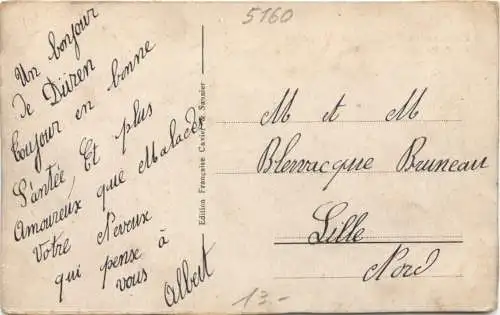 5160
Un bonjour
de Düren
toujour en bonne
S'antée, Et plus
Amoureux que Malade
Votre Neveux
qui pense à
vous Albert
Edition Française Cavier & Savnier
M et M
Blervacque Bruneau
Lille
Nord
13.-